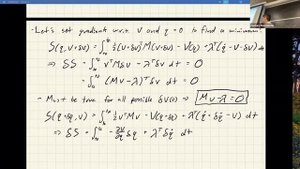 - Let's set gradient w.r.t. v and q = 0 to find a minimum:
S(q, v+δv) = ∫_{t₀}^{t_f} ½(v+δv)ᵀM(v+δv) - V(q) + λᵀ(q̇ - v - δv) dt
⇒ δS = ∫_{t₀}^{t_f} vᵀMδv - λᵀδv dt = 0
= ∫_{t₀}^{t_f} (Mv-λ)ᵀδv dt = 0
- Must be true for all possible δv(t) ⇒ Mv-λ=0
S(q+δq, v) = ∫_{t₀}^{t_f} ½vᵀMv - V(q+δq) + λᵀ(q̇ + δq̇ - v) dt
⇒ δS = ∫_{t₀}^{t_f} - ∂V/∂q δq + λᵀδq̇ dt